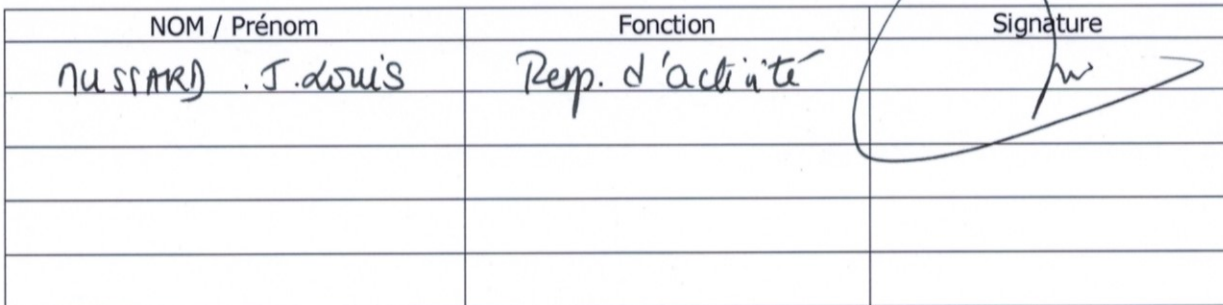 NOM / Prénom Fonction Signature
MUSSARD . J. Louis Resp. d'activité